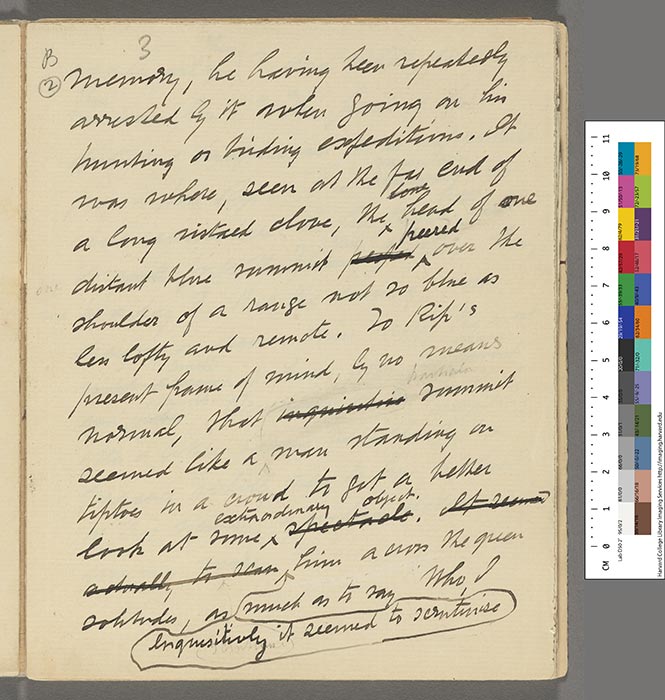 B 3
② memory, he having been repeatedly
arrested by it when going on his
hunting or birding expeditions. It
was where, seen at the far end of
a long vistaed clove, the lone head of one
distant blue summit peeped peered over the
shoulder of a range not so blue as
less lofty and remote. To Rip's
present frame of mind, by no means
normal, that inquisitive summit
seemed like a man standing on
tiptoes in a crowd to get a better
look at some extraordinary spectacle. object. It seemed
actually to scan him across the green
solitudes, as much as to say Who, I
Inquisitively it seemed to scrutinise
one
CM 0 1 2 3 4 5 6 7 8 9 10 11
Harvard College Library Imaging Services http://imaging.harvard.edu